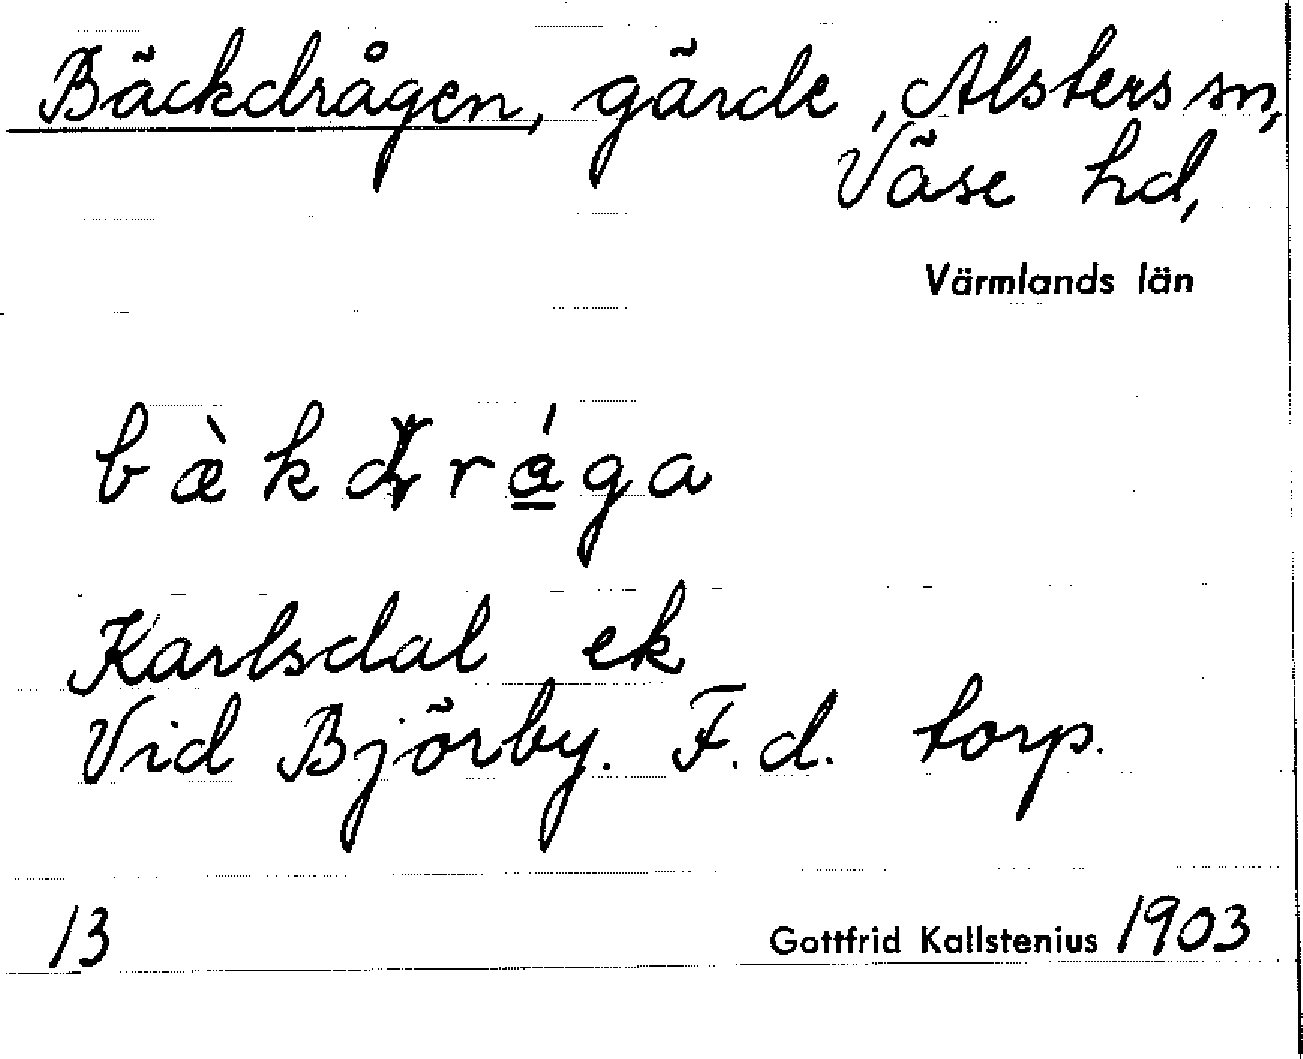 Bäckdrågen, gärde, Alsters sn,
Väse hd,
Värmlands län
bæ̀kdrǻga
Karlsdal ek
Vid Björby. F.d. torp.
13 Gottfrid Kallstenius 1903